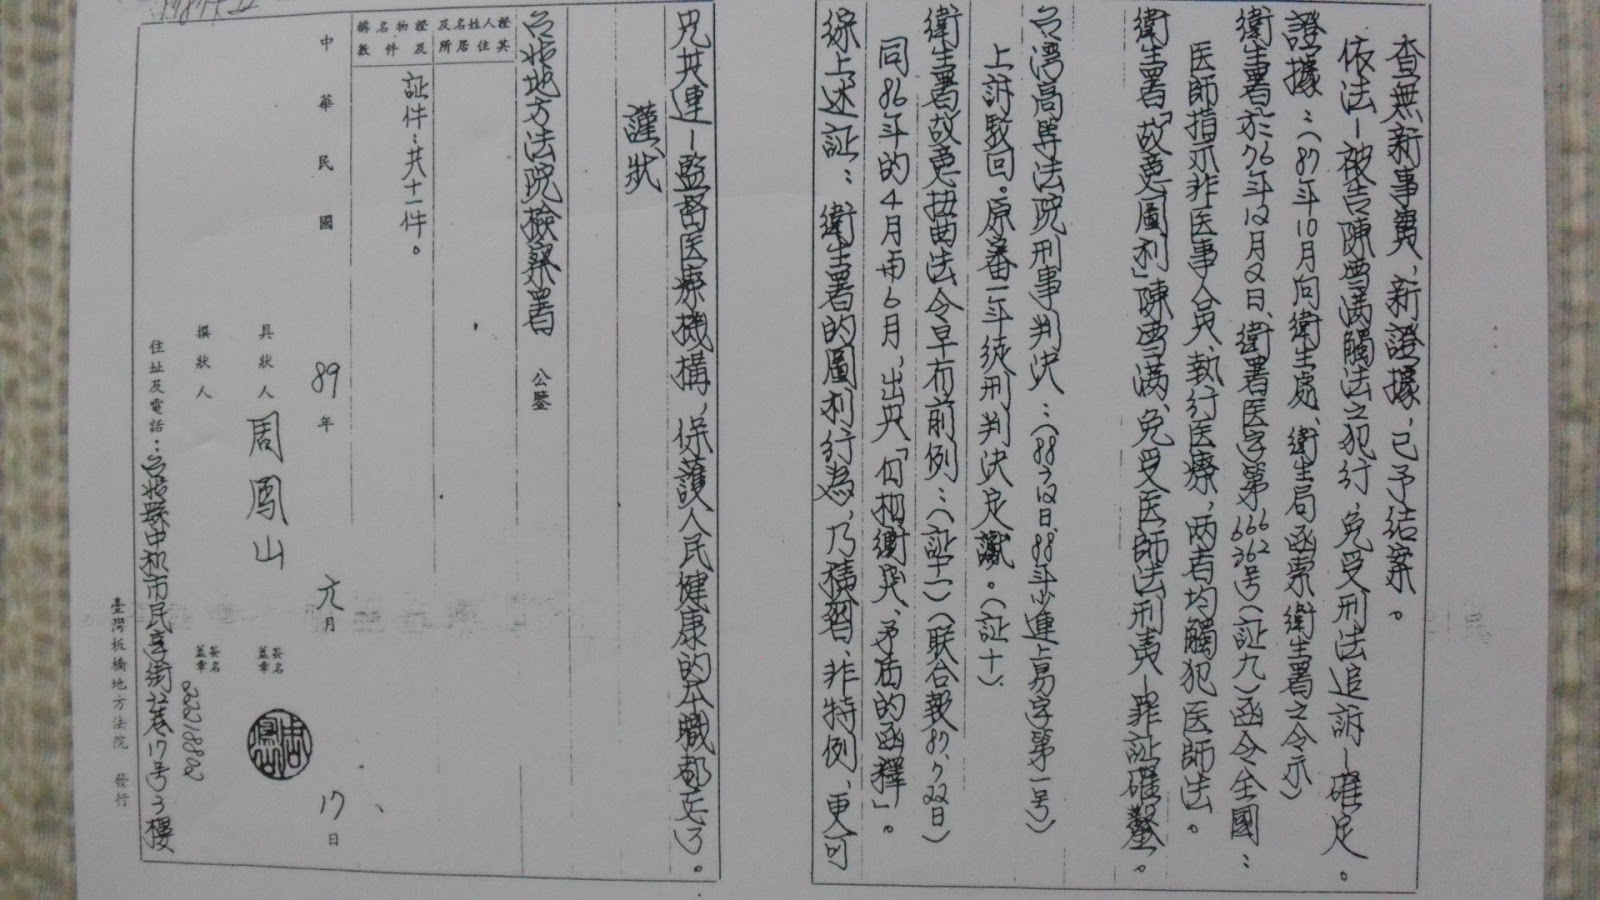 查無新事實,新證據,已予結案。
依法—被告陳雪满觸法之犯行,免受刑法追訴—確足。
證據:(87年10月向衛生處、衛生局函索衛生署之令示)
衛生署於76年12月2日、衛署医字第666362号(証九)函令全國:
医師指示非医事人員、執行医療,两者均觸犯医師法。
衛生署「故意圖利」陳雪满、免受医師法刑責—罪証確鑿。
台湾高等法院刑事判決:(88,7,12日、88年少連上易字第一号)
上訴駁回。原審一年徒刑判決定讞。(証十)
衛生署故意扭曲法令早有前例:(証十一)(联合報87,7,22日)
同86年的4月而6月,出具「自相衝突、矛盾的函釋」。
綜上述証:衛生署的圖利行為,乃積習、非特例、更可
見其連—監督医療機構,保護人民健康的本職都忘了。
謹狀
台北地方法院檢察署 公鑒
證人姓名及其住居所
證物名稱及件數
証件:共十一件。
中華民國 89年 元月 17日
具狀人 周鳳山 簽名蓋章
撰狀人 簽名蓋章
住址及電話:台北縣中和市民享街22巷17号3樓
22218882
臺灣板橋地方法院 發行